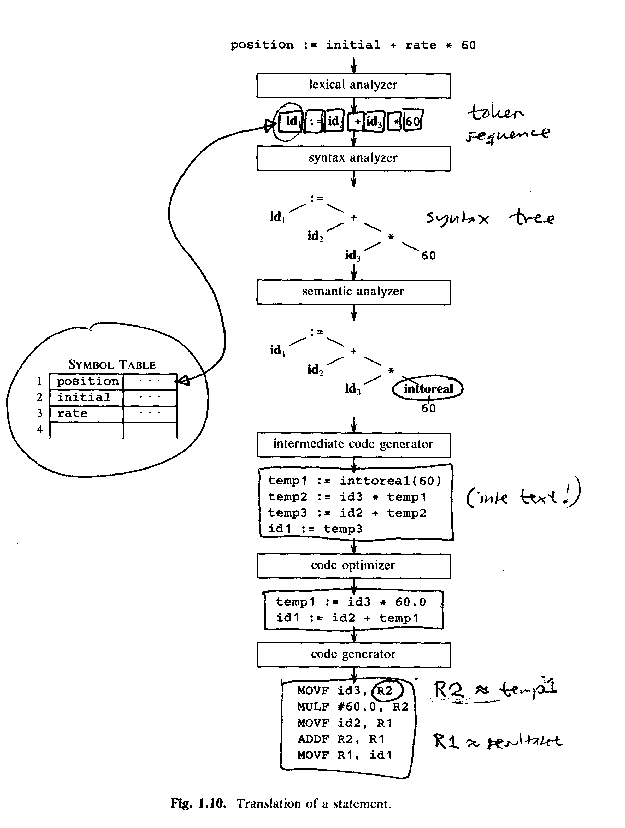 position := initial + rate * 60
lexical analyzer
id1 := id2 + id3 * 60
token
sequence
syntax analyzer
:=
id1 +
id2 *
id3 60
syntax tree
semantic analyzer
:=
id1 +
id2 *
id3 inttoreal
60
SYMBOL TABLE
1 position ...
2 initial ...
3 rate ...
4
intermediate code generator
temp1 := inttoreal(60)
temp2 := id3 * temp1
temp3 := id2 + temp2
id1 := temp3
(inte text!)
code optimizer
temp1 := id3 * 60.0
id1 := id2 + temp1
code generator
MOVF id3, R2
MULF #60.0, R2
MOVF id2, R1
ADDF R2, R1
MOVF R1, id1
R2 ≈ temp1
R1 ≈ resultatet
Fig. 1.10. Translation of a statement.